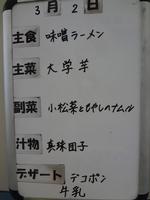 3月2日
主食 味噌ラーメン
主菜 大学芋
副菜 小松菜ともやしのナムル
汁物 真珠団子
デザート デコポン
牛乳